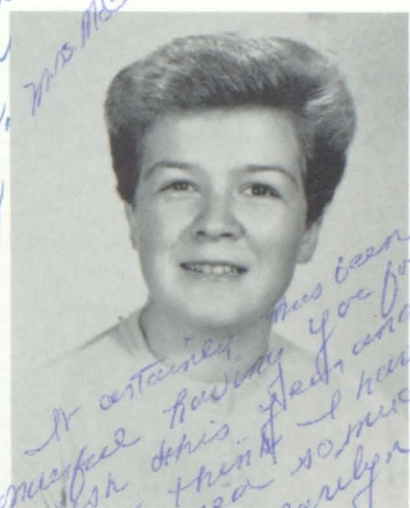 Mrs. Mc
It certainly has been
having you for
this year and
think I have
so much